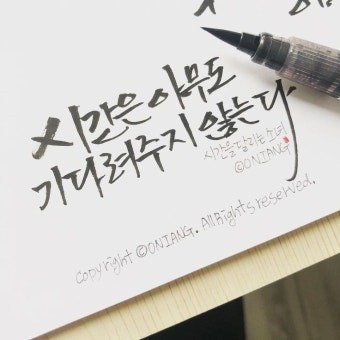 시간은 아무도
기다려주지 않는다
시간을 달리는 소녀
©ONIANG
Copyright ©ONIANG. All Rights reserved.